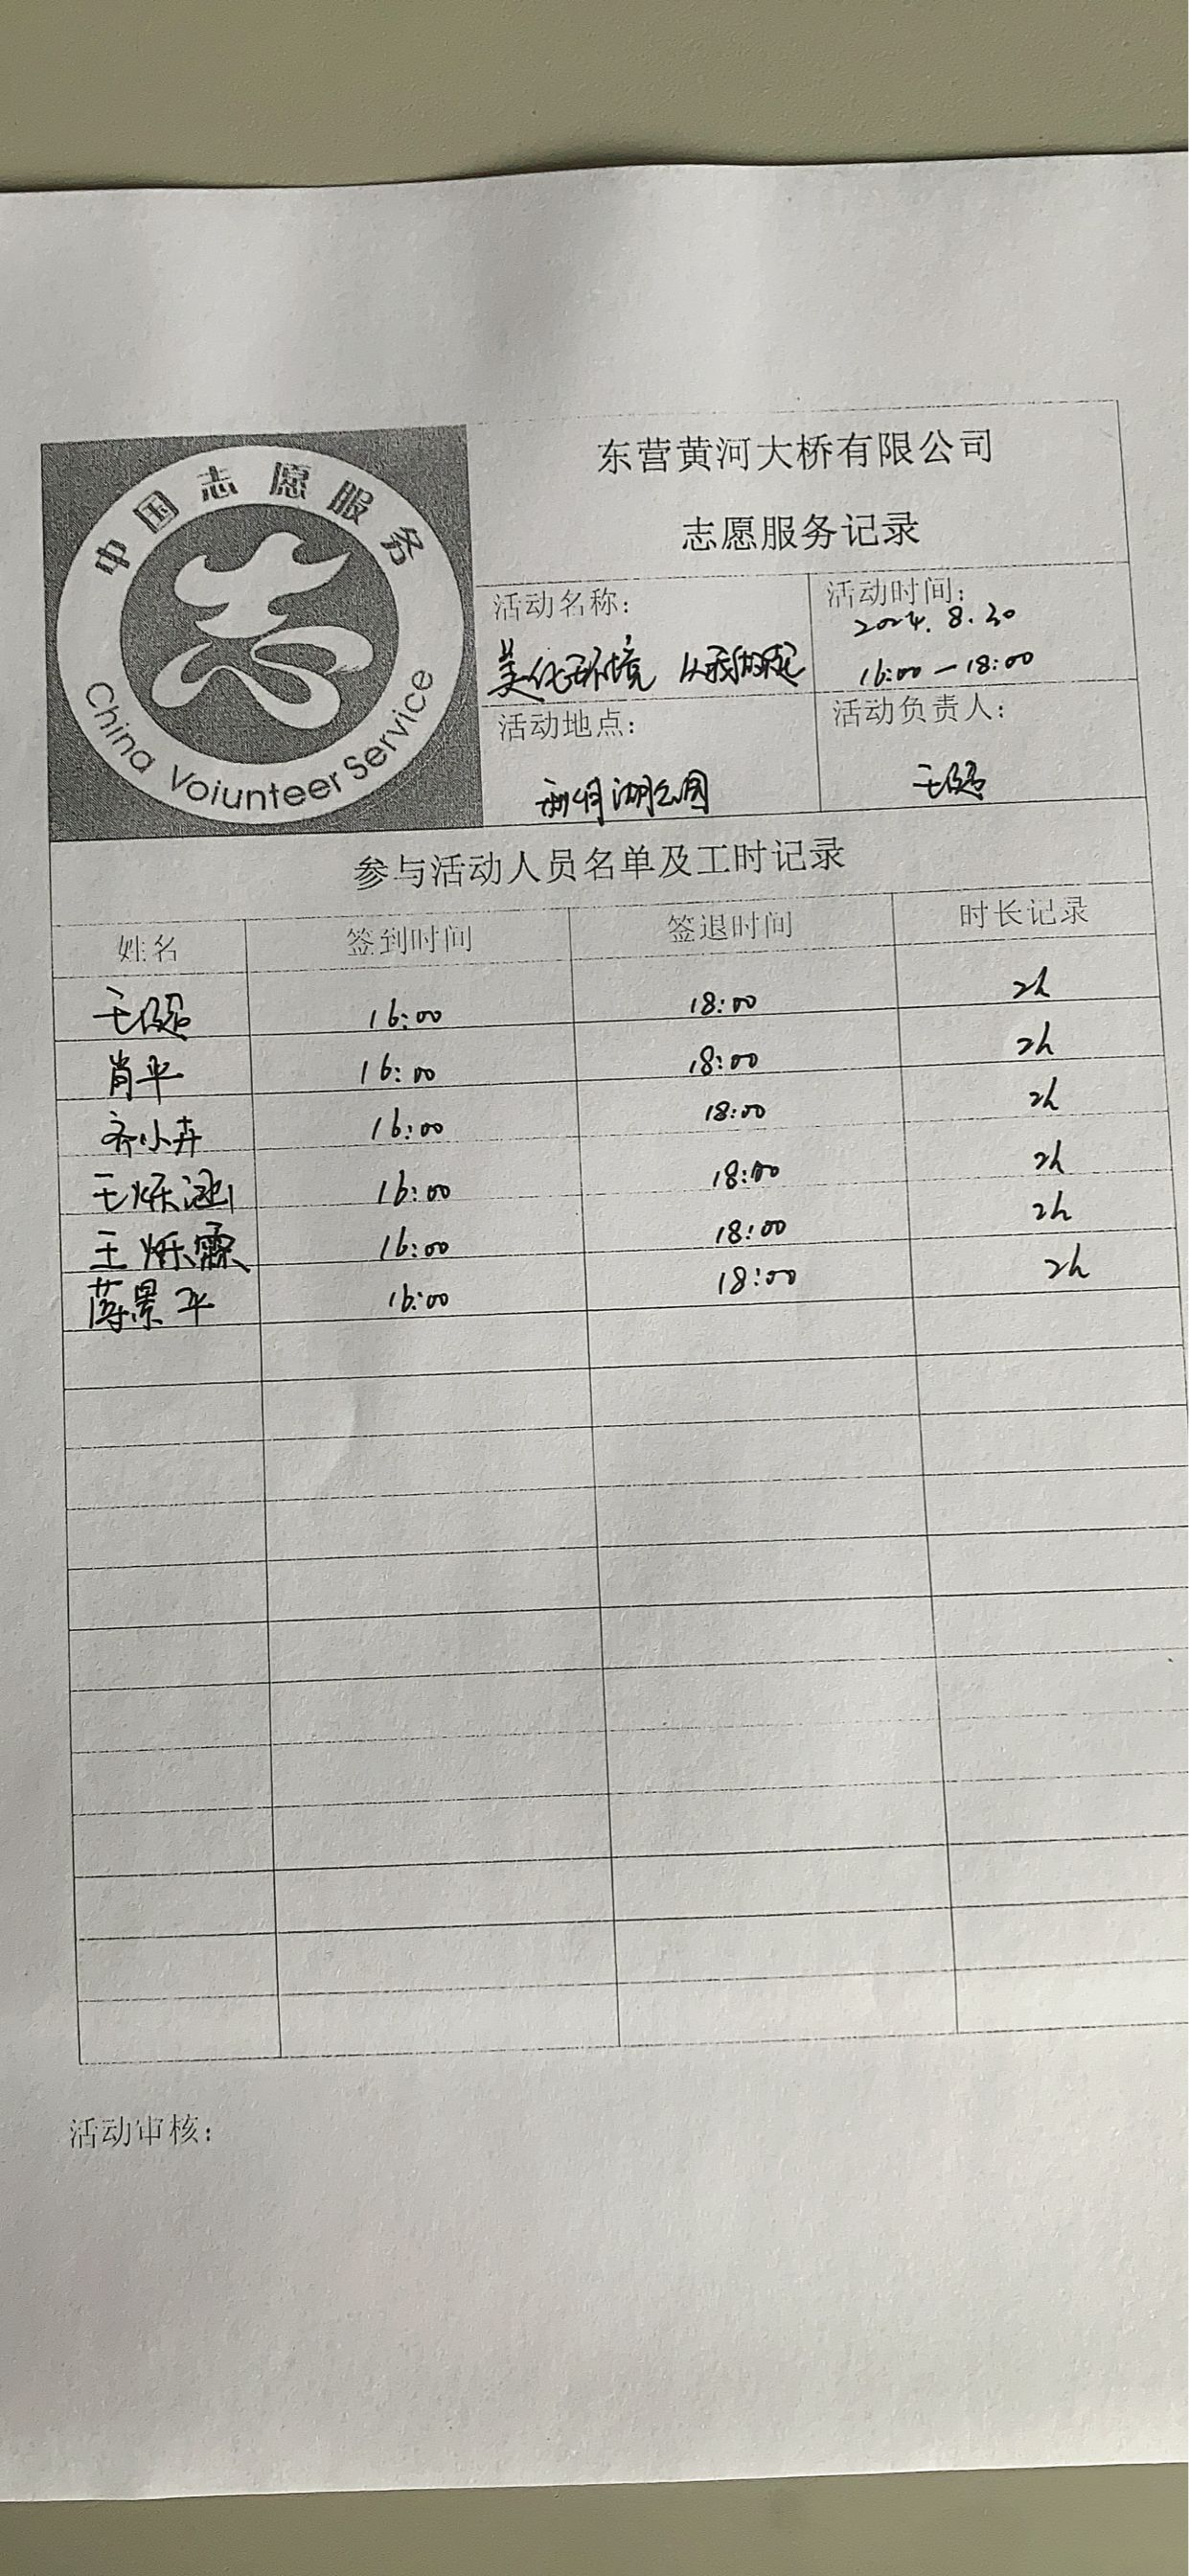 中国志愿服务
China Voiunteer Service
东营黄河大桥有限公司
志愿服务记录
活动名称：
美化环境 从我做起
活动时间：
2024.8.30
16:00—18:00
活动地点：
湖公园
活动负责人：
王
参与活动人员名单及工时记录
姓名 签到时间 签退时间 时长记录
王 16:00 18:00 2h
肖平 16:00 18:00 2h
齐小卉 16:00 18:00 2h
王 16:00 18:00 2h
王烁霖 16:00 18:00 2h
蒋景平 16:00 18:00 2h
活动审核：